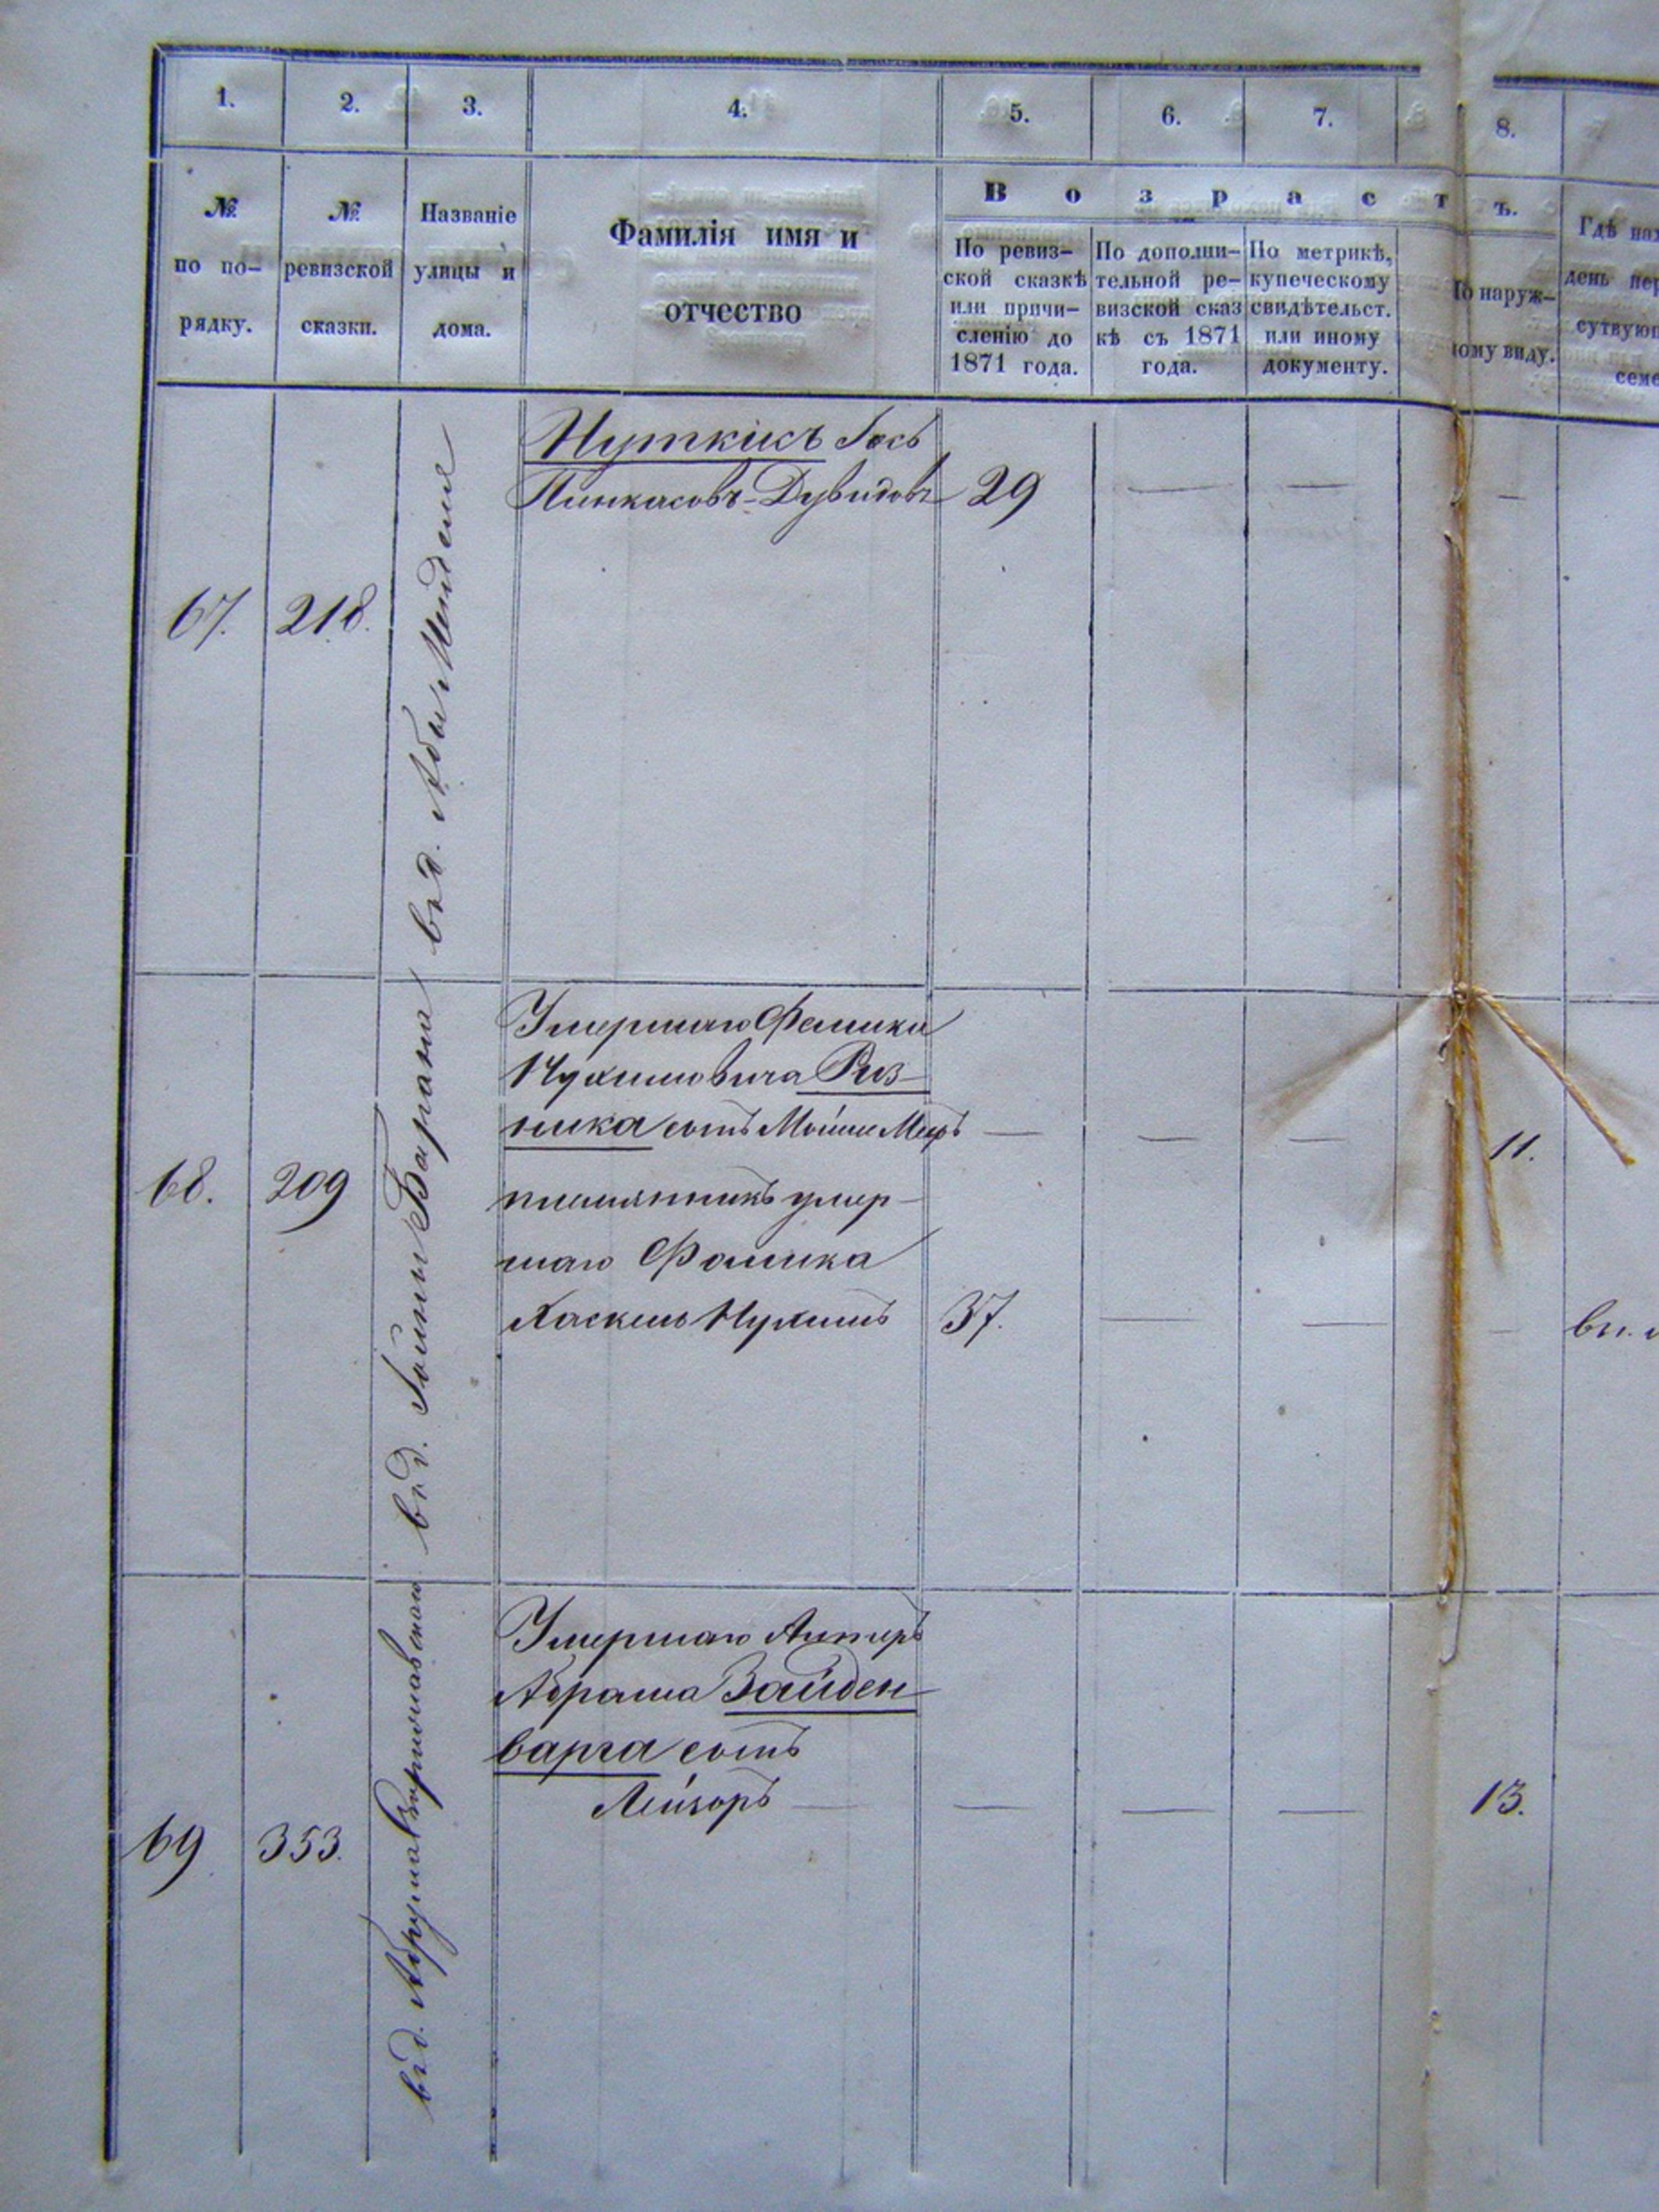 1. 2. 3. 4. 5. 6. 7. 8.
№ по по-рядку.
№ ревизской сказки.
Названіе улицы и дома.
Фамилія имя и отчество
Возрастъ.
По ревиз-
ской сказкѣ
или причи-
сленію до
1871 года.
По дополни-
тельной ре-
визской сказ
кѣ съ 1871
года.
По метрикѣ,
купеческому
свидѣтельст.
или иному
документу.
По наруж-
ному виду.
Гдѣ нах
день пер
сутвую
семе
67. 218.
въ д. Абы Менделя
Нуткисъ Іось
Пинкасовъ-Дувидовъ 29 — — —
68. 209
въ д. Боруха
Умершаго Фалика
Нухимовича Риз-
ника сынъ Мойше Меръ — — — 11.
племянникъ умер-
шаго Фалика
Хаскель Нухимъ 37. — — —
69 353.
въ д.
Умершаго Алтеръ
Абрама Зайден-
варга сынъ
Лейзоръ — — — — 13.